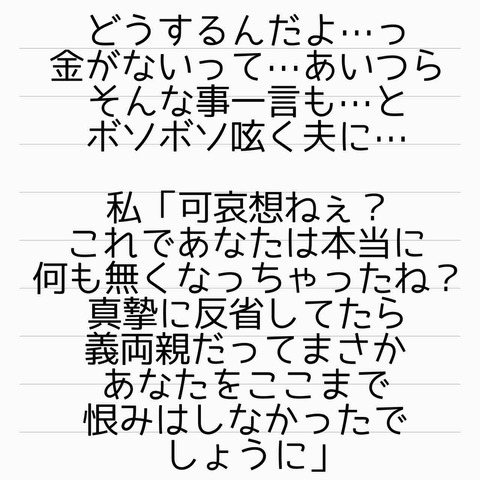 どうするんだよ…っ
金がないって…あいつら
そんな事一言も…と
ボソボソ呟く夫に…
私「可哀想ねぇ？
これであなたは本当に
何も無くなっちゃったね？
真摯に反省してたら
義両親だってまさか
あなたをここまで
恨みはしなかったで
しょうに」